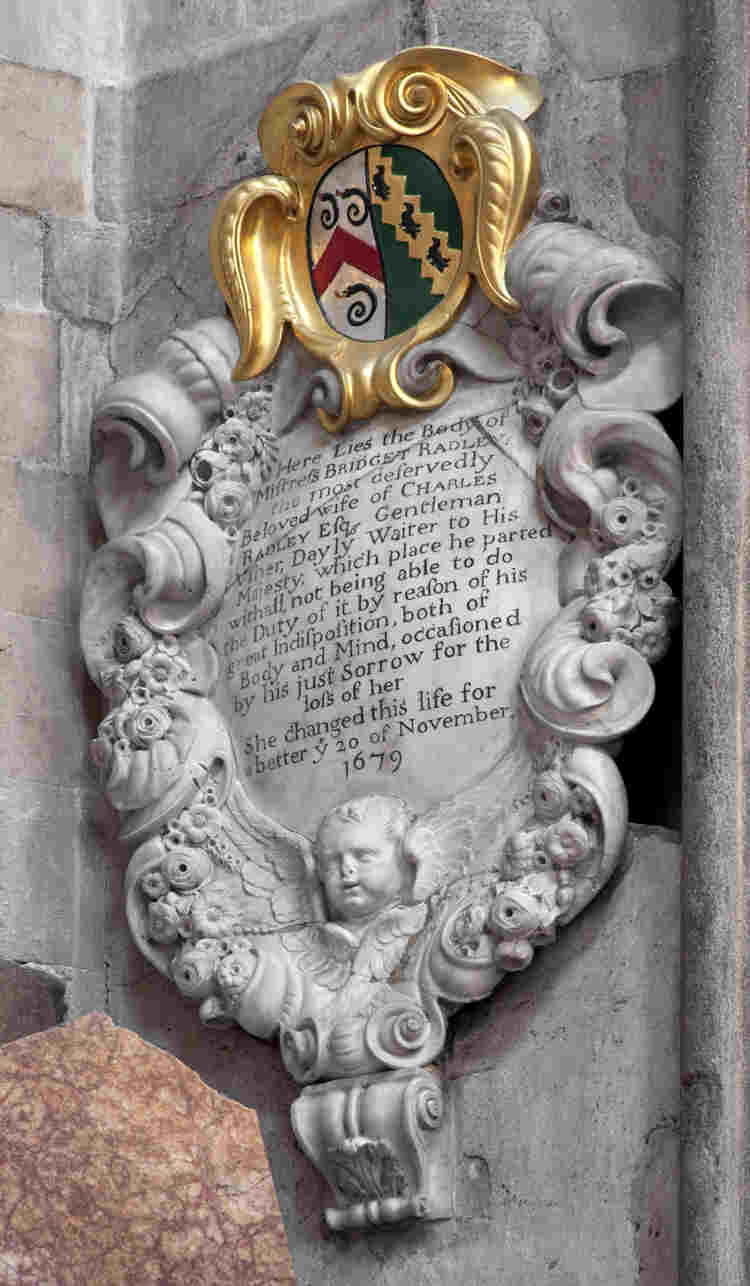 Here Lies the Body of
Miſtreſs BRIDGET RADLEY,
the most deſervedly
Beloved wife of CHARLES
RADLEY Eſqr. Gentleman
Uſher, Dayly Waiter to His
Majesty, which place he parted
withall, not being able to do
the Duty of it by reaſon of his
great Indiſpoſition, both of
Body and Mind, occaſioned
by his just Sorrow for the
loſs of her
She changed this life for
a better ẏ 20 of November,
1679